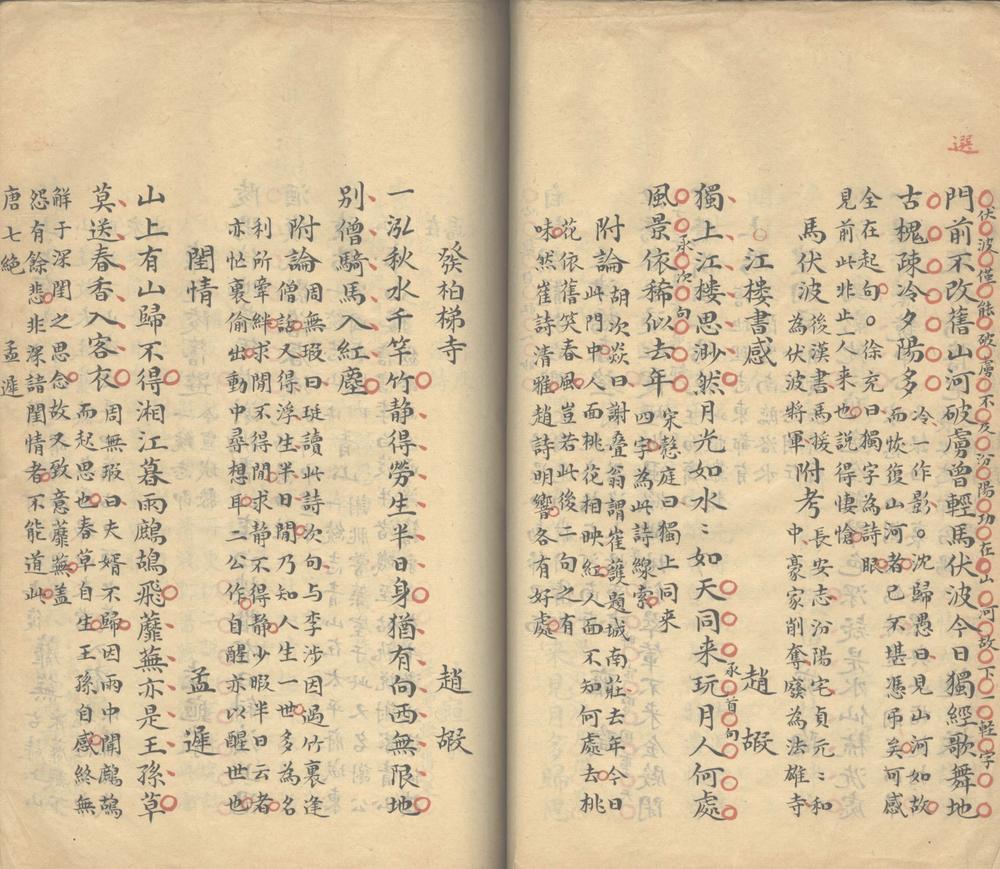 選
伏波僅能破虜不及汾陽功在山河故下一輕字
門前不改舊山河破虜曾輕馬伏波今日獨經歌舞地
古槐疎冷夕陽多
冷一作影。沈歸愚曰見山河如故
而恢復山河者已不堪憑吊矣可感
全在起句。徐充曰獨字為詩眼
見前此非止一人来也說得悽愴
馬伏波
後漢書馬援
為伏波將軍
附考
長安志汾陽宅貞元ミ和
中豪家削奪窽為法雄寺
江楼書感
趙嘏
承首句
獨上江楼思渺然月光如水ミ如天同来玩月人何處
承次句
風景依稀似去年
宋慤庭曰獨上同来
四字為此詩線索
附論
胡次焱曰謝叠翁謂崔護題城南莊去年今日
此門中人面桃花相映紅人面不知何處去桃
花依舊笑春風豈若此後二句之有
味然崔詩清雅趙詩明響各有好處
發柏梯寺
趙嘏
一泓秋水千竿竹静得勞生半日身猶有向西無限地
別僧騎馬入紅塵
附論
周無瑕曰珽讀此詩次句与李涉因過竹裏逢
僧話又得浮生半日閒乃知人生一世多為名
利所牽絆求閒不得閒求静不得静少暇半日云者
亦忙裏偷出動中尋想耳二公作自醒亦以醒世也
閨情
孟遲
山上有山歸不得湘江暮雨鷓鴣飛蘼蕪亦是王孫草
莫送春香入客衣
周無瑕曰夫婿不歸因雨中聞鷓鴣
而起思也春草自生王孫自感終無
解于深閨之思念故又致意蘼蕪盖
怨有餘悲非深諳閨情者不能道此
唐七絶
孟遲